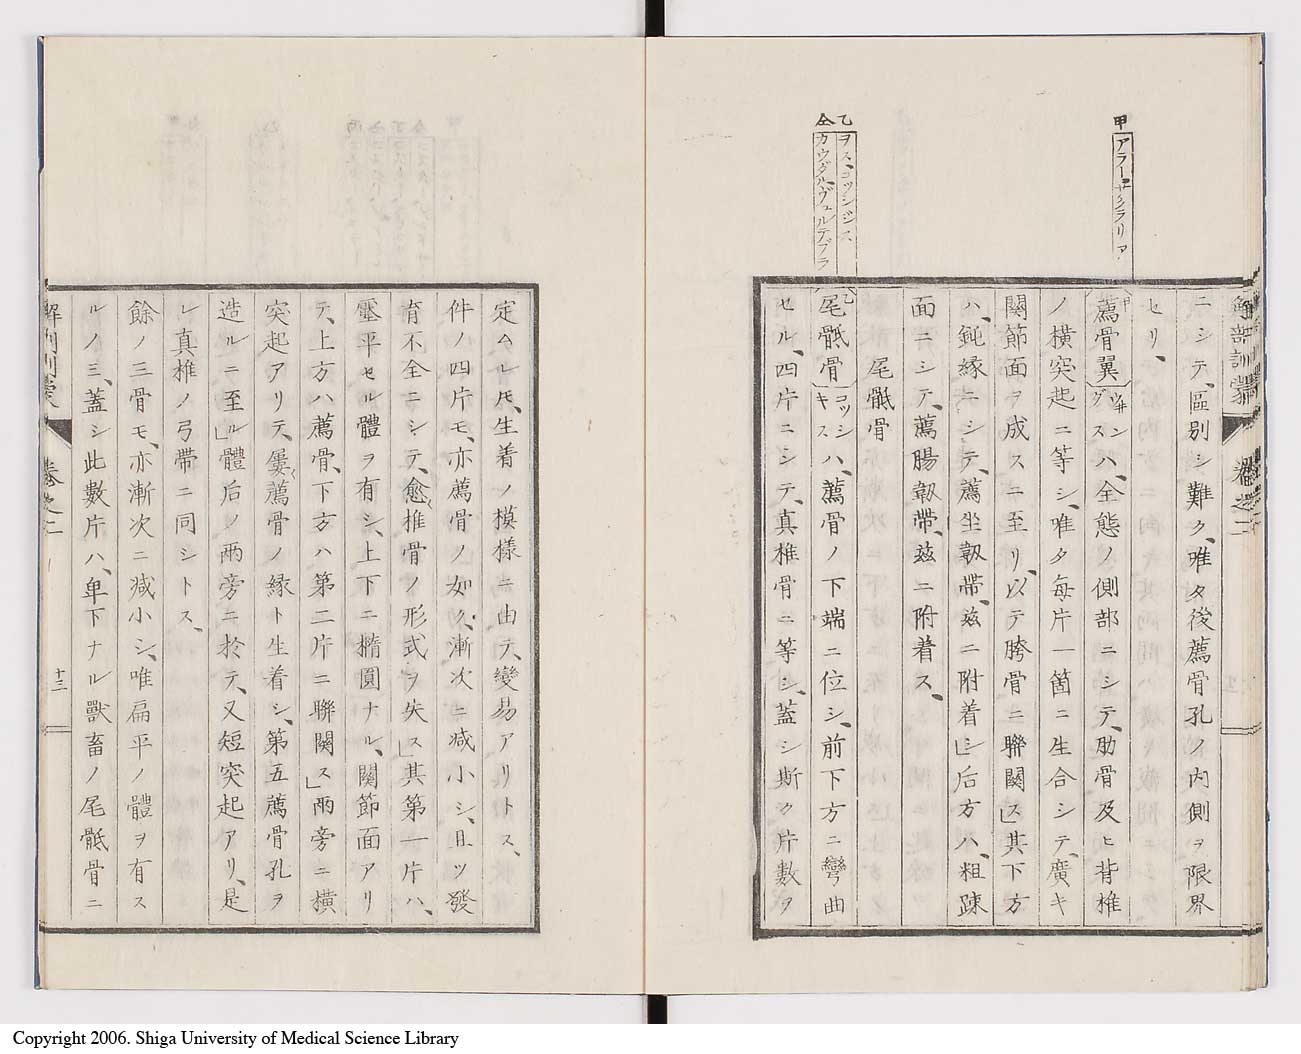 甲 アラーサクラリア
乙 ヲス、コッシジス
仝 カウダル、ヴェルテブラ
解部訓蒙 卷之二
ニシテ、區別シ難ク、唯タ後薦骨孔ノ内側ヲ限界
セリ、
甲薦骨翼〔ウ井ングス〕ハ、全態ノ側部ニシテ、肋骨及ヒ背椎
ノ横突起ニ等シ、唯タ毎片一箇ニ生合シテ、廣キ
關節面ヲ成スニ至リ、以テ胯骨ニ聯關ス」其下方
ハ、鈍縁ニシテ、薦坐靱帶、茲ニ附着シ」后方ハ、粗疎
面ニシテ、薦腸靱帶、茲ニ附着ス、
尾骶骨
乙尾骶骨〔コッシキス〕ハ、薦骨ノ下端ニ位シ、前下方ニ彎曲
セル、四片ニシテ、真椎骨ニ等シ、蓋シ斯ク片數ヲ
定ムルㇳモ、生着ノ模様ニ由テ、變易アリトス、
件ノ四片モ、亦薦骨ノ如ク、漸次ニ減小シ、且ツ發
育不全ニシテ、愈〱推骨ノ形式ヲ失ス」其第一片ハ、
壓平セル體ヲ有シ、上下ニ橢圓ナル、關節面アリ
テ、上方ハ薦骨、下方ハ第二片ニ聯關ス」兩旁ニ横
突起アリテ、屢〱薦骨ノ縁ト生着シ、第五薦骨孔ヲ
造ルニ至ル」體后ノ兩旁ニ於テ、又短突起アリ、是
レ真椎ノ弓帶ニ同シトス、
餘ノ三骨モ、亦漸次ニ減小シ、唯扁平ノ體ヲ有ス
ルノミ、蓋シ此數片ハ、卑下ナル獸畜ノ尾骶骨ニ
卷之二 十三
Copyright 2006. Shiga University of Medical Science Library